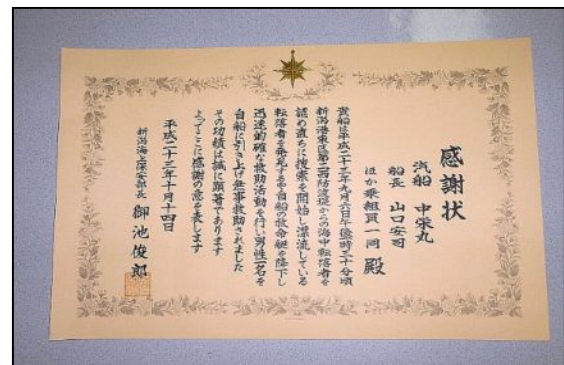 感謝状
汽船 中栄丸
船長 山口安司
ほか乗組員一同 殿
貴船は平成二十三年九月六日午後時三十分頃
新潟港東区第二西防波堤からの海中転落者を
認め直ちに捜索を開始し漂流している
転落者を発見するや自船の救命艇を降下し
迅速的確な救助活動を行い男性一名を
自船に引き上げ無事救助されました
その功績は誠に顕著であります
よつてここに感謝の意を表します
平成二十三年十月十四日
新潟海上保安部長 御池俊郎